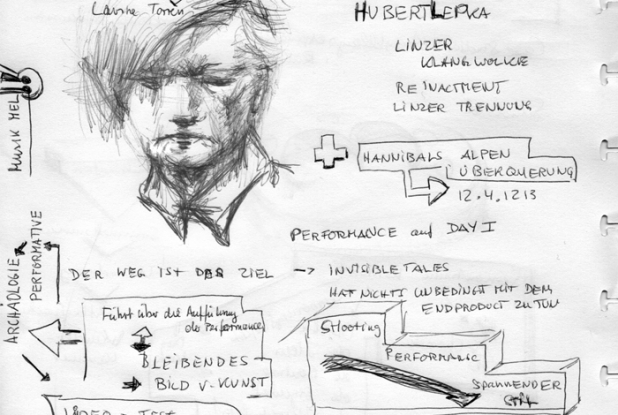 HUBERT LEPKA
LINZER
KLANGWOLKE
REINACTMENT
LINZER TRENNUNG
MUSIK
HANNIBALS ALPEN
ÜBERQUERUNG
12.4.1213
PERFORMANCE auf DAY I
ARCHÄOLOGIE
PERFORMATIVE
DER WEG IST DER ZIEL → INVISIBLE TALES
HAT NICHTS UNBEDINGT MIT DEM
ENDPRODUCT ZU TUN
Führt über die Aufführung
der Performance
BLEIBENDES
BILD V. KUNST
Shooting
PERFORMANCE
SPANNENDER